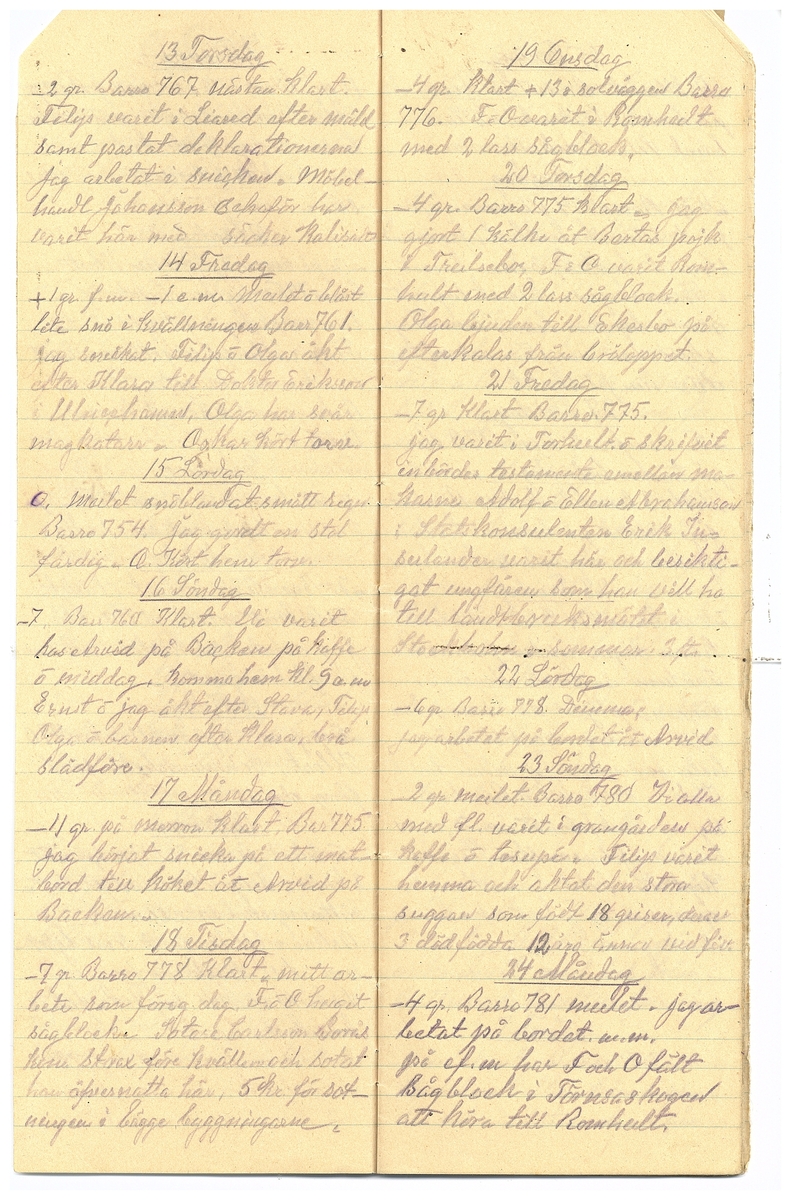 13 Torsdag
-2 gr. Barro 767 nästan klart.
Filip varit i Liared efter mäld
samt postat deklarationerna
jag arbetat i snickeri. Möbel-
handl. Johansson o chaför har
varit här med säcker Kalisalt
14 Fredag
+1 gr. f.m. -1 e.m. Mulet o blåst
lite snö i kvällningen Barr 761.
jag snickat. Filip o Olga åkt
efter Klara till Doktor Erikson
i Ulricehamn, Olga har svår
magkatarr. Oskar kört torv.
15 Lördag
0. Mulet snöblandat smått regn.
Barro 754. Jag gjordt en stol
färdig. O. Kört hem torv.
16 Söndag
-7, Barr 760 Klart. Vi varit
hos Arvid på Backen på kaffe
o middag. komma hem kl. 9 em
Ernst o jag åkt efter Stora, Filip
Olga o barnen efter Klara, bra
slädföre.
17 Måndag
-11 gr. på morron klart, Bar 775
jag börjat snicka på ett mat-
bord till köket åt Arvid på
Backen.
18 Tisdag
-7 gr. Barro 778 Klart. mitt ar-
bete som föreg. dag. F o O huget
sågblock. Sotare Carlsson Borås
kom strax före kvällen och sotat
han öfvernatta här, 5 kr. för sot-
ningen i bägge byggningarne.
19 Onsdag
-4 gr. Klart +13 i solväggen Barro
776. F o O varit i Romhult
med 2 lass sågblock.
20 Torsdag
-4 gr. Barro 775 klart. jag
gjort 1 kälke åt Bertas pojk
i Treilsebo, F o O varit Rom-
hult med 2 lass sågblock.
Olga bjuden till Ekesbo på
efterkalas från bröloppet.
21 Fredag
-7 gr Klart Barro. 775.
jag varit i Torhult o skrifvit
inbördes testamente emellan ma-
karne Adolf o Ellen Abrahamson
i Statskonsulenten Erik In-
serlander varit här och besikti-
gat ungtjuren som han vill ha
till landtbruksmötet i
Stockholm i sommar. 3 st.
22 Lördag
-6 gr Barro 778. Dimma,
jag arbetat på bordet åt Arvid
23 Söndag
-2 gr mulet. Barro 780 Vi alla
med fl. varit i grangården på
kaffe o tesupé. Filip varit
hemma och aktat den stora
suggan som född 18 griser, derav
3 dödfödda 12 äro ännu vid liv.
24 Måndag
-4 gr. Barro 781 mulet. jag ar-
betat på bordet m.m.
på ef.m har F och O fält
Sågblock i Törnsaskogen
att köra till Romhult.